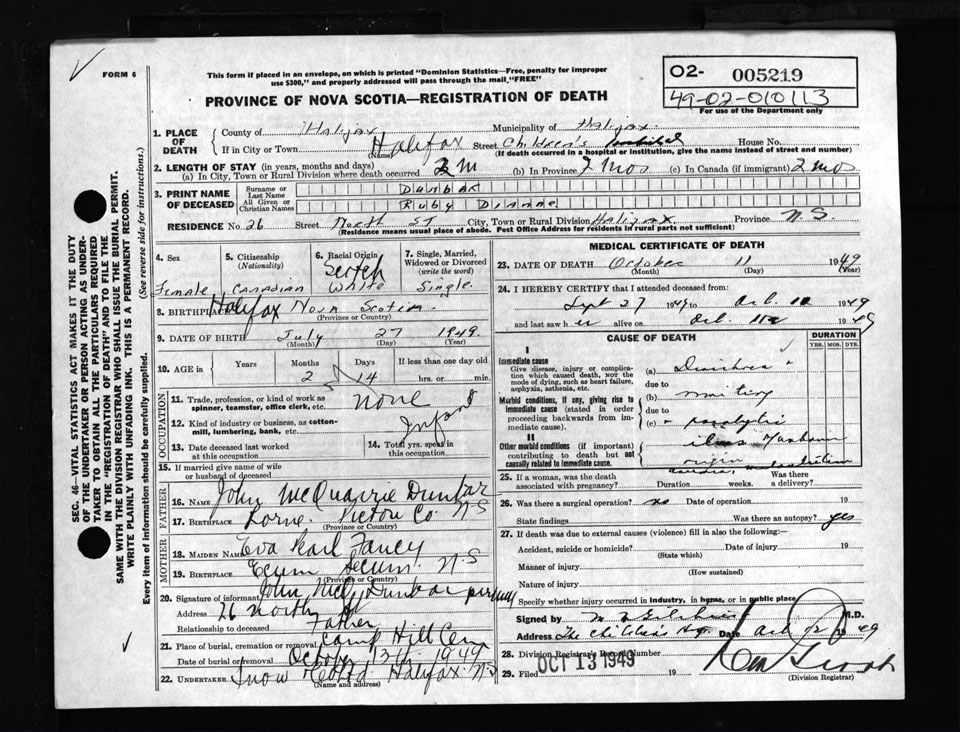 FORM 6
This form if placed in an envelope, on which is printed "Dominion Statistics—Free, penalty for improper
use $300," and properly addressed will pass through the mail "FREE"
PROVINCE OF NOVA SCOTIA—REGISTRATION OF DEATH
02- 005219
49-02-010113
For use of the Department only
SEC. 46—VITAL STATISTICS ACT MAKES IT THE DUTY
OF THE UNDERTAKER OR PERSON ACTING AS UNDER-
TAKER TO OBTAIN ALL THE PARTICULARS REQUIRED
IN THE "REGISTRATION OF DEATH" AND TO FILE THE
SAME WITH THE DIVISION REGISTRAR WHO SHALL ISSUE THE BURIAL PERMIT.
WRITE PLAINLY WITH UNFADING INK. THIS IS A PERMANENT RECORD.
Every item of information should be carefully supplied. (See reverse side for instructions.)
1. PLACE OF DEATH County of Halifax Municipality of Halifax
If in City or Town Halifax Street Children's Hospital House No.
(Name) (If death occurred in a hospital or institution, give the name instead of street and number)
2. LENGTH OF STAY (in years, months and days)
(a) In City, Town or Rural Division where death occurred 2 m (b) In Province 2 mos (c) In Canada (if immigrant) 2 mos
3. PRINT NAME OF DECEASED Surname or Last Name Dunbar
All Given or Christian Names Ruby Dianne
RESIDENCE No. 26 Street North St City, Town or Rural Division Halifax Province N.S.
(Residence means usual place of abode. Post Office Address for residents in rural parts not sufficient)
4. Sex Female
5. Citizenship (Nationality) Canadian
6. Racial Origin Scotch White
7. Single, Married, Widowed or Divorced (write the word) Single
8. BIRTHPLACE Halifax Nova Scotia
(Province or Country)
9. DATE OF BIRTH July 27 1949
(Month) (Day) (Year)
10. AGE in Years Months 2 Days 14 If less than one day old hrs. or min.
OCCUPATION
11. Trade, profession, or kind of work as spinner, teamster, office clerk, etc. none
12. Kind of industry or business, as cotton-mill, lumbering, bank, etc. Infant
13. Date deceased last worked at this occupation
14. Total yrs. spent in this occupation
15. If married give name of wife or husband of deceased
FATHER
16. NAME John McQuarrie Dunbar
17. BIRTHPLACE Lorne Pictou Co. N S
(Province or Country)
MOTHER
18. MAIDEN NAME Eva Pearl Fancy
19. BIRTHPLACE Ecum Secum N S
(Province or Country)
20. Signature of informant John McQ Dunbar
Address 26 North St
Relationship to deceased Father
21. Place of burial, cremation or removal Camp Hill Cem
Date of burial or removal October 13th 1949
22. UNDERTAKER Snow & Co Ltd Halifax N S
(Name and address)
MEDICAL CERTIFICATE OF DEATH
23. DATE OF DEATH October 11 1949
(Month) (Day) (Year)
24. I HEREBY CERTIFY that I attended deceased from:
Sept 27 1949 to Oct. 1949
and last saw her alive on Oct. 11 1949
CAUSE OF DEATH
DURATION
YRS. MOS. DYS.
I
Immediate cause
Give disease, injury or complication which caused death, not the mode of dying, such as heart failure, asphyxia, asthenia, etc.
(a) Diarrhea
due to
Morbid conditions, if any, giving rise to immediate cause (stated in order proceeding backwards from immediate cause).
(b)
due to
(c) paralytic
ileus
II
Other morbid conditions (if important) contributing to death but not causally related to immediate cause.
origin
25. If a woman, was the death associated with pregnancy? Duration weeks. Was there a delivery?
26. Was there a surgical operation? no Date of operation 19
State findings Was there an autopsy? yes
27. If death was due to external causes (violence) fill in also the following:
Accident, suicide or homicide? Date of injury 19
(State which)
Manner of injury
(How sustained)
Nature of injury
Specify whether injury occurred in industry, in home, or in public place
Signed by M.D.
Address The Children's Hosp. Date Oct 12 1949
28. Division Registrar's Record Number
29. Filed OCT 13 1949
(Division Registrar)